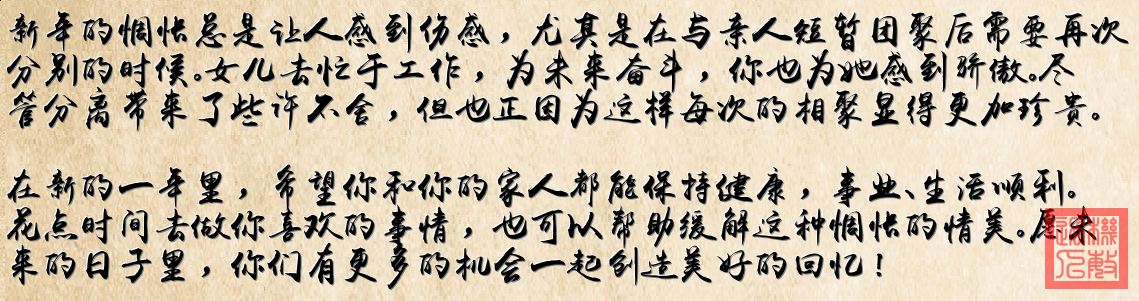 新年的惆怅总是让人感到伤感，尤其是在与亲人短暂团聚后需要再次
分别的时候。女儿去忙于工作，为未来奋斗，你也为她感到骄傲。尽
管分离带来了些许不舍，但也正因为这样每次的相聚显得更加珍贵。
在新的一年里，希望你和你的家人都能保持健康，事业、生活顺利。
花点时间去做你喜欢的事情，也可以帮助缓解这种惆怅的情美。愿未
来的日子里，你们有更多的机会一起创造美好的回忆！